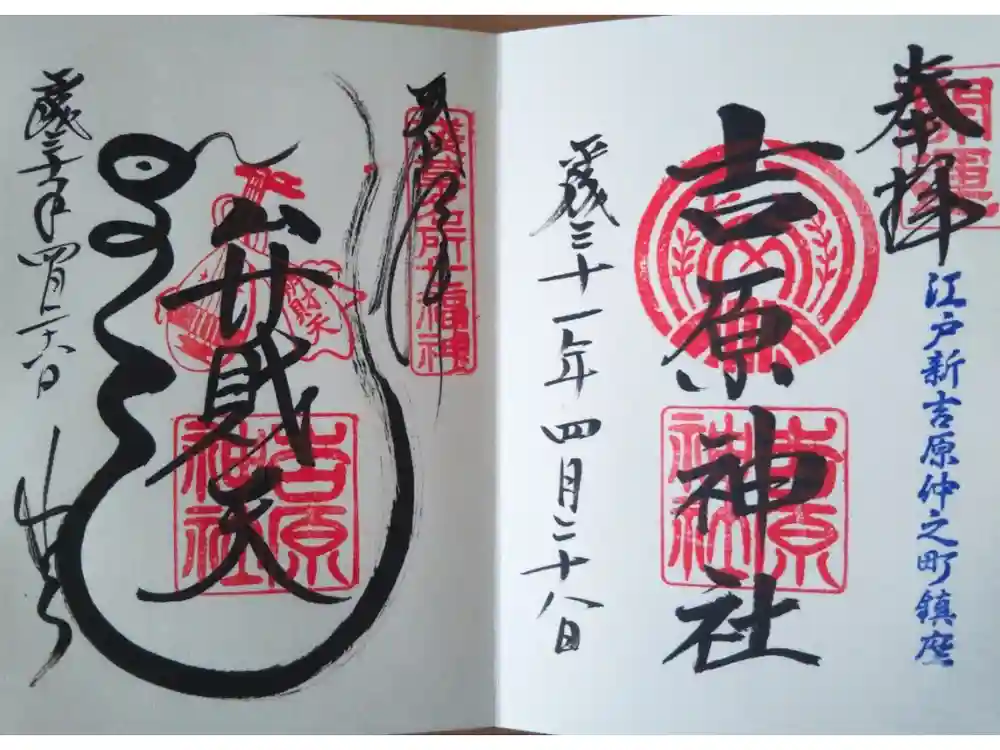 奉拝
開運
江戸新吉原仲之町鎮座
吉原神社
吉原神社
平成三十一年四月二十八日
浅草名所七福神
弁財天
弁財天
吉原神社
四月二十八日